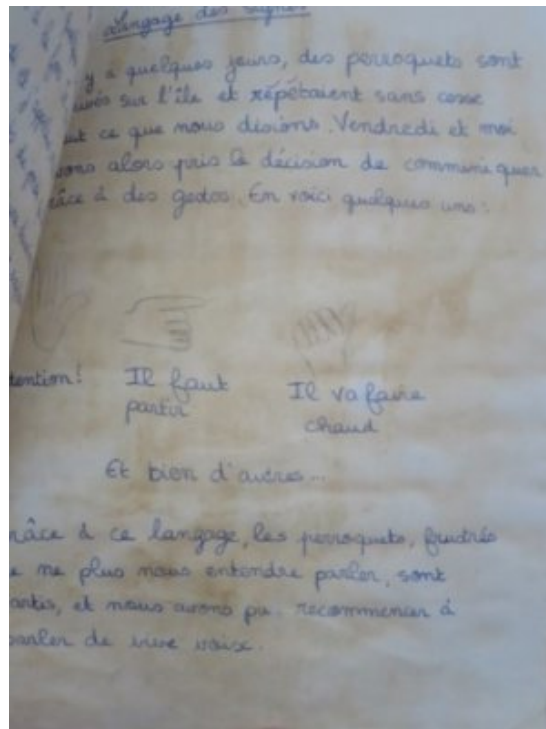 Langage des signes
y a quelques jours, des perroquets sont
sur l'île et répétaient sans cesse
ce que nous disions. Vendredi et moi
alors pris la décision de communiquer
à des gestes. En voici quelques uns :
tention! Il faut Il va faire
partir chaud
Et bien d'autres...
râce à ce langage, les perroquets, frustrés
ne plus nous entendre parler, sont
artis, et nous avons pu recommencer à
parler de vive voix.